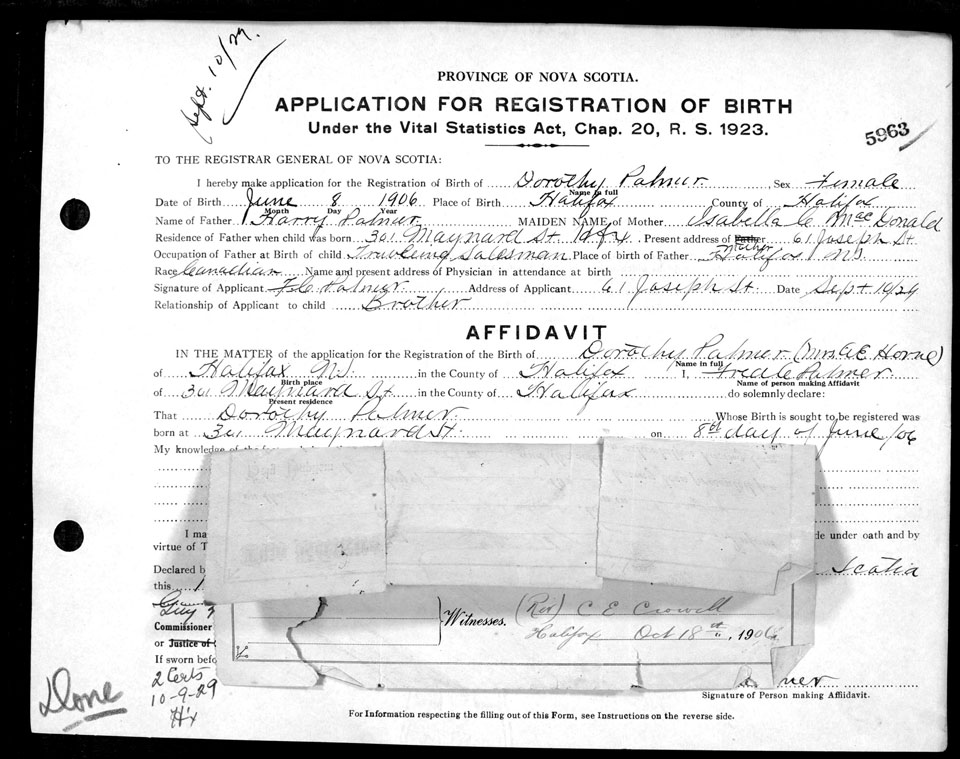 Sept. 10/29.
PROVINCE OF NOVA SCOTIA.
APPLICATION FOR REGISTRATION OF BIRTH
Under the Vital Statistics Act, Chap. 20, R. S. 1923.
5963
TO THE REGISTRAR GENERAL OF NOVA SCOTIA:
I hereby make application for the Registration of Birth of Dorothy Palmer. Sex Female
Name in full
Date of Birth June 8 1906 Place of Birth Halifax County of Halifax
Month Day Year
Name of Father Harry Palmer MAIDEN NAME of Mother Isabella C MacDonald
Residence of Father when child was born 301 Maynard St Hfx. Present address of Father Mother 61 Joseph St.
Occupation of Father at Birth of child Traveling Salesman Place of birth of Father Halifax NS
Race Canadian Name and present address of Physician in attendance at birth
Signature of Applicant Palmer Address of Applicant 61 Joseph St. Date Sept 10/29
Relationship of Applicant to child Brother
AFFIDAVIT
IN THE MATTER of the application for the Registration of the Birth of Dorothy Palmer (Mrs Horne)
Name in full
of Halifax NS. in the County of Halifax I, Palmer
Birth place Name of person making Affidavit
of Maynard St in the County of Halifax do solemnly declare:
Present residence
That Dorothy Palmer Whose Birth is sought to be registered was
born at Maynard St. on 8th day of June /06
My knowledge of the
I ma de under oath and by
virtue of T
Declared b Scotia
this 1
Guy
Commissioner
or Justice of
Witnesses.
(Rev) C E Crowell
Halifax Oct 18th, 1906
If sworn befo
2 Certs
10-9-29
Hx
Done
mer
Signature of Person making Affidavit.
For Information respecting the filling out of this Form, see Instructions on the reverse side.